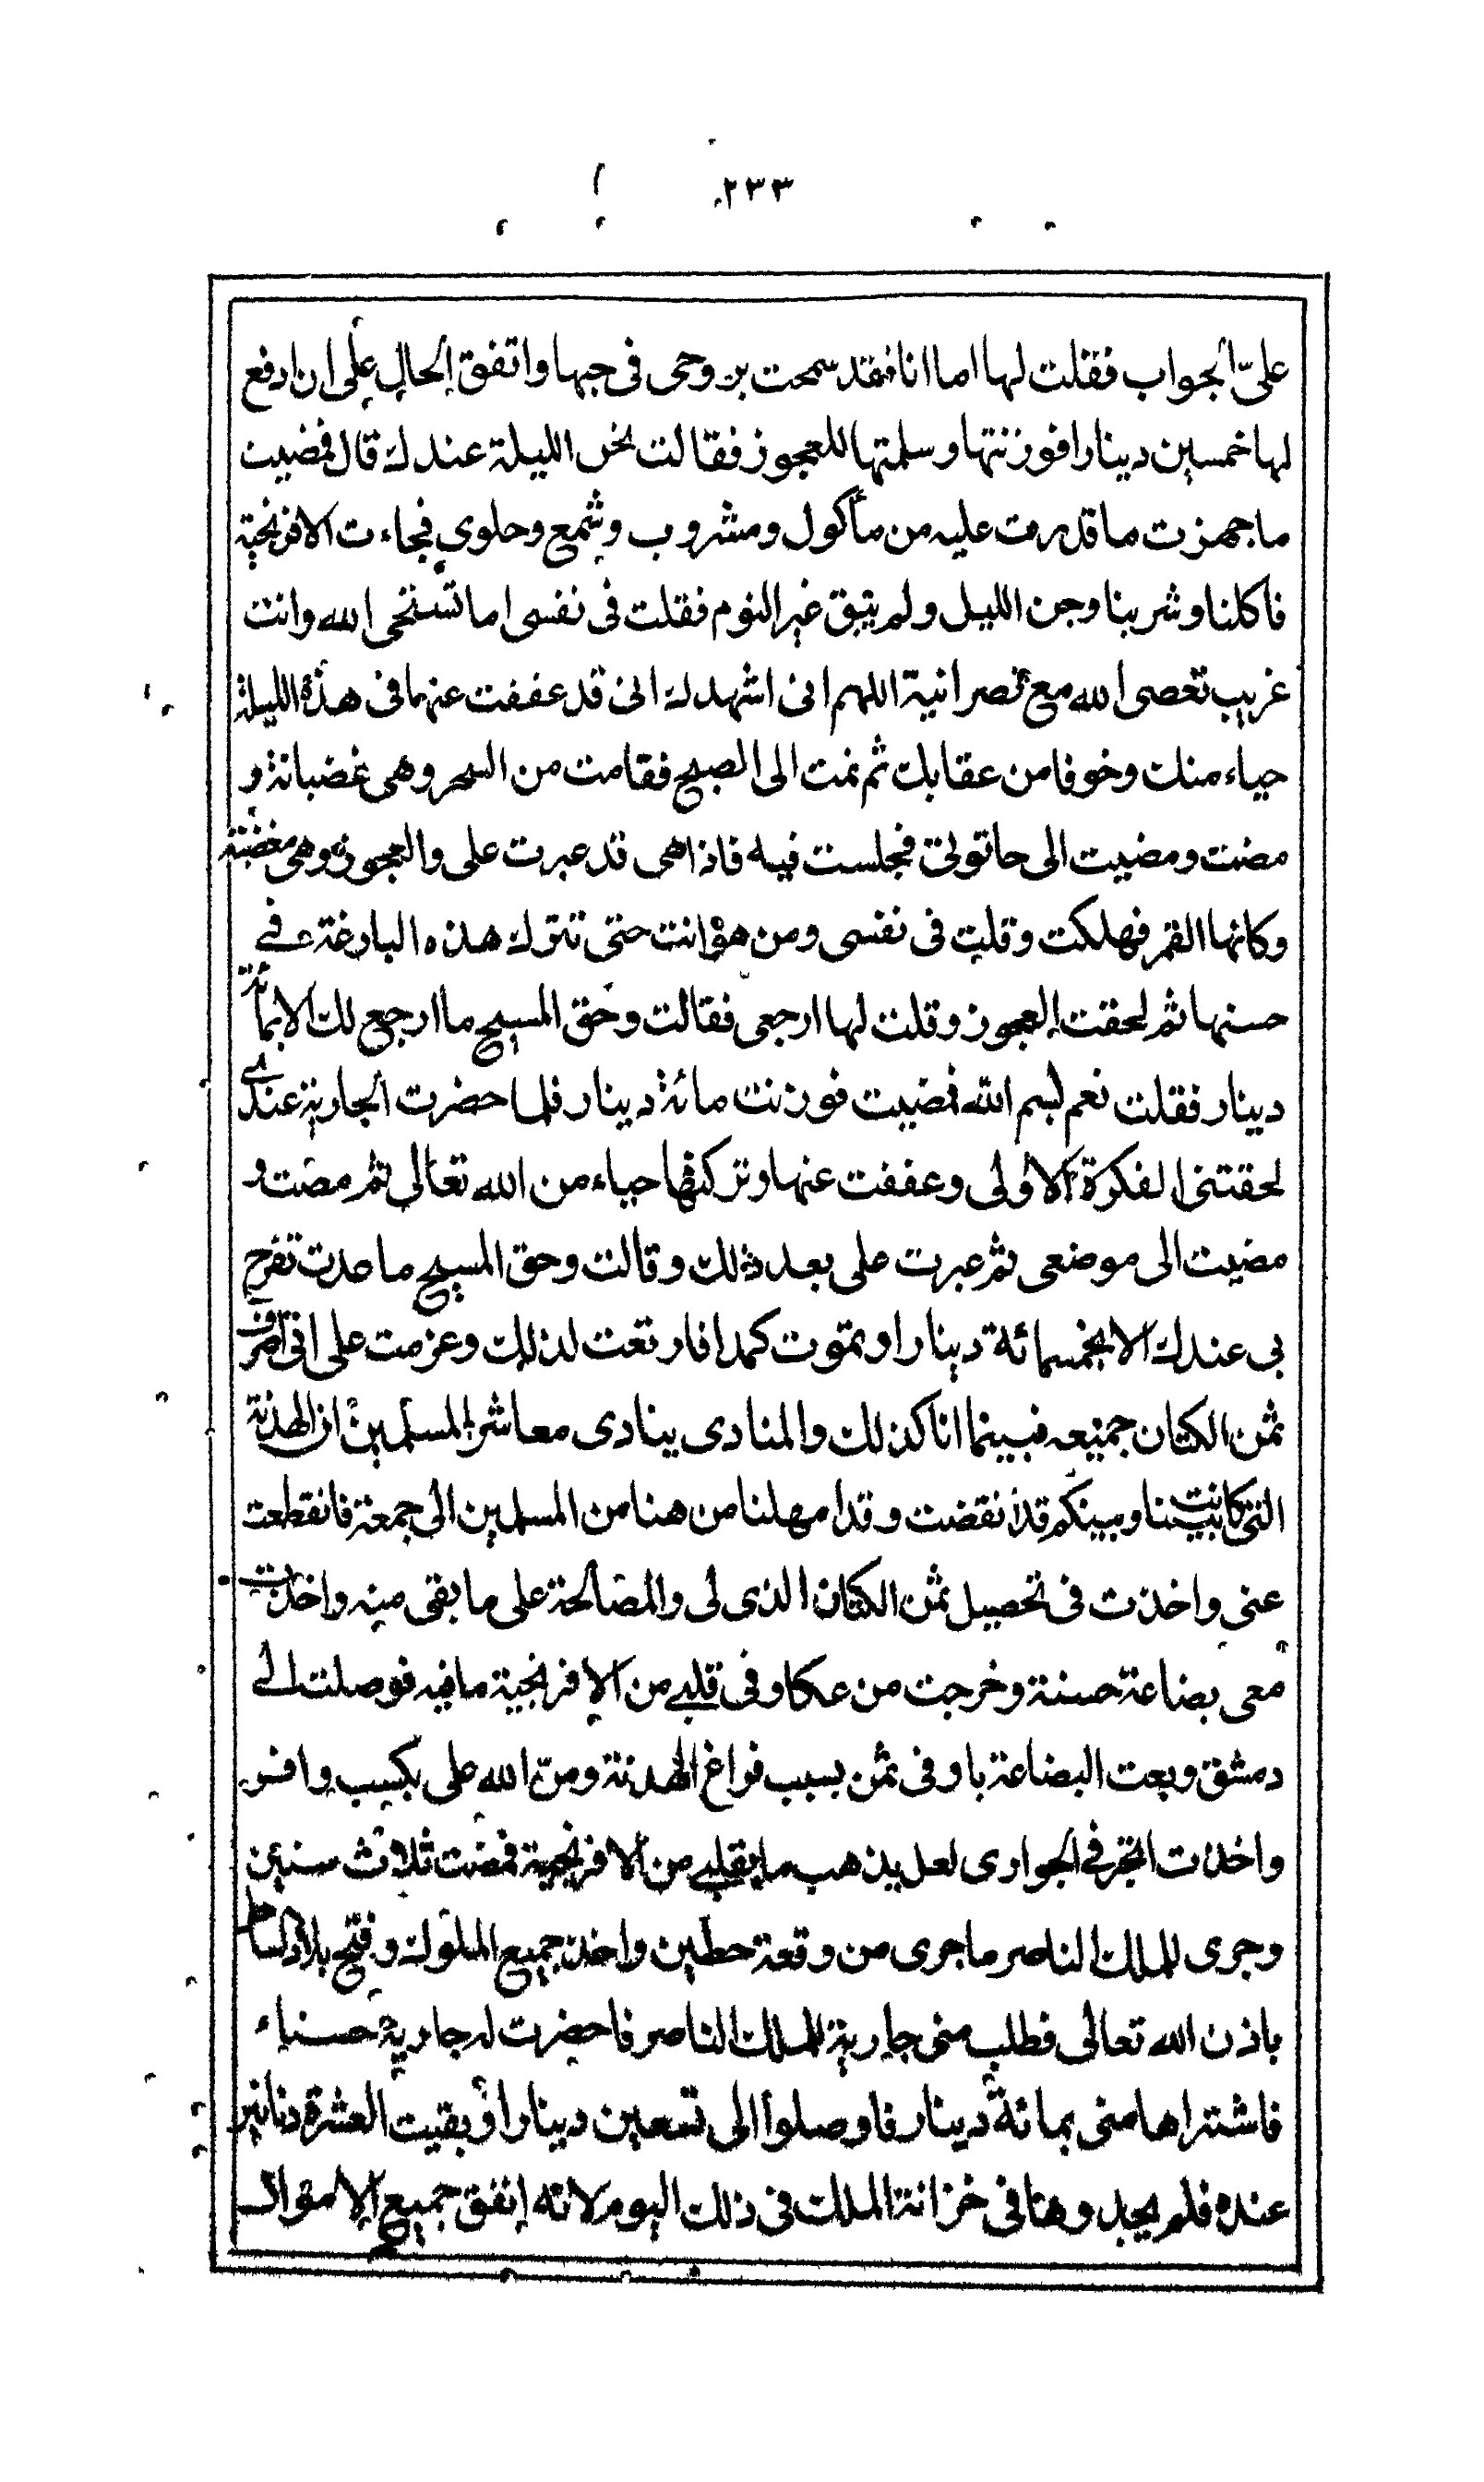 ٢٣٣
علىّ الجواب فقلت لها اما انا فقد سمحت بروحى فى حبها واتفق الحال على ان ادفع
لها خمسين دينارا فوزنتها وسلمتها للعجوز فقالت نحن الليلة عندك قال فمضيت
ما جهزت ما قدرت عليه من مأكول ومشروب وشمع وحلوى فجاءت الافرنجية
فاكلنا وشربنا وجن الليل ولم يبق غير النوم فقلت فى نفسى اما تستحى الله وانت
غريب تعصى الله مع نصرانية اللهم انى اشهدك انى قد عففت عنها فى هذه الليلة
حياء منك وخوفا من عقابك ثم نمت الى الصبح فقامت من السحر وهى غضبانة و
مضت ومضيت الى حانوتى فجلست فيه فاذا هى قد عبرت على والعجوز وهى مغضبة
وكانها القمر فهلكت وقلت فى نفسى ومن هو انت حتى تترك هذه البارعة فى
حسنها ثم لحقت العجوز وقلت لها ارجعى فقالت وحق المسيح ما ارجع لك الا بمائة
دينار فقلت نعم بسم الله فمضيت فوزنت مائة دينار فلما حضرت الجارية عندى
لحقتنى الفكرة الاولى وعففت عنها وتركتها حياء من الله تعالى ثم مضت و
مضيت الى موضعى ثم عبرت على بعد ذلك وقالت وحق المسيح ما عدت تفرح
بى عندك الا بخمسمائة دينار او تموت كمدا فارتعت لذلك وعزمت على انى اصرف
ثمن الكتان جميعه فبينما انا كذلك والمنادى ينادى معاشر المسلمين ان الهدنة
التى كانت بيننا وبينكم قد انقضت وقد امهلنا من هنا من المسلمين الى جمعة فانقطعت
عنى واخذت فى تحصيل ثمن الكتان الذى لى والمصالحة على ما بقى منه واخذت
معى بضاعة حسنة وخرجت من عكا وفى قلبى من الافرنجية ما فيه فوصلت الى
دمشق وبعت البضاعة باوفى ثمن بسبب فراغ الهدنة ومنّ الله على بكسب وافر
واخذت اتجر فى الجوارى لعل يذهب ما بقلبى من الافرنجية فمضت ثلاث سنين
وجرى للملك الناصر ما جرى من وقعة حطين واخذ جميع الملوك وفتح بلاد الساحل
باذن الله تعالى فطلب منى جارية للملك الناصر فاحضرت له جارية حسناء
فاشتراها منى بمائة دينار فاوصلوا الى تسعين دينارا وبقيت العشرة دنانير
عنده فلم يجدوها فى خزانة الملك فى ذلك اليوم لانه انفق جميع الاموال